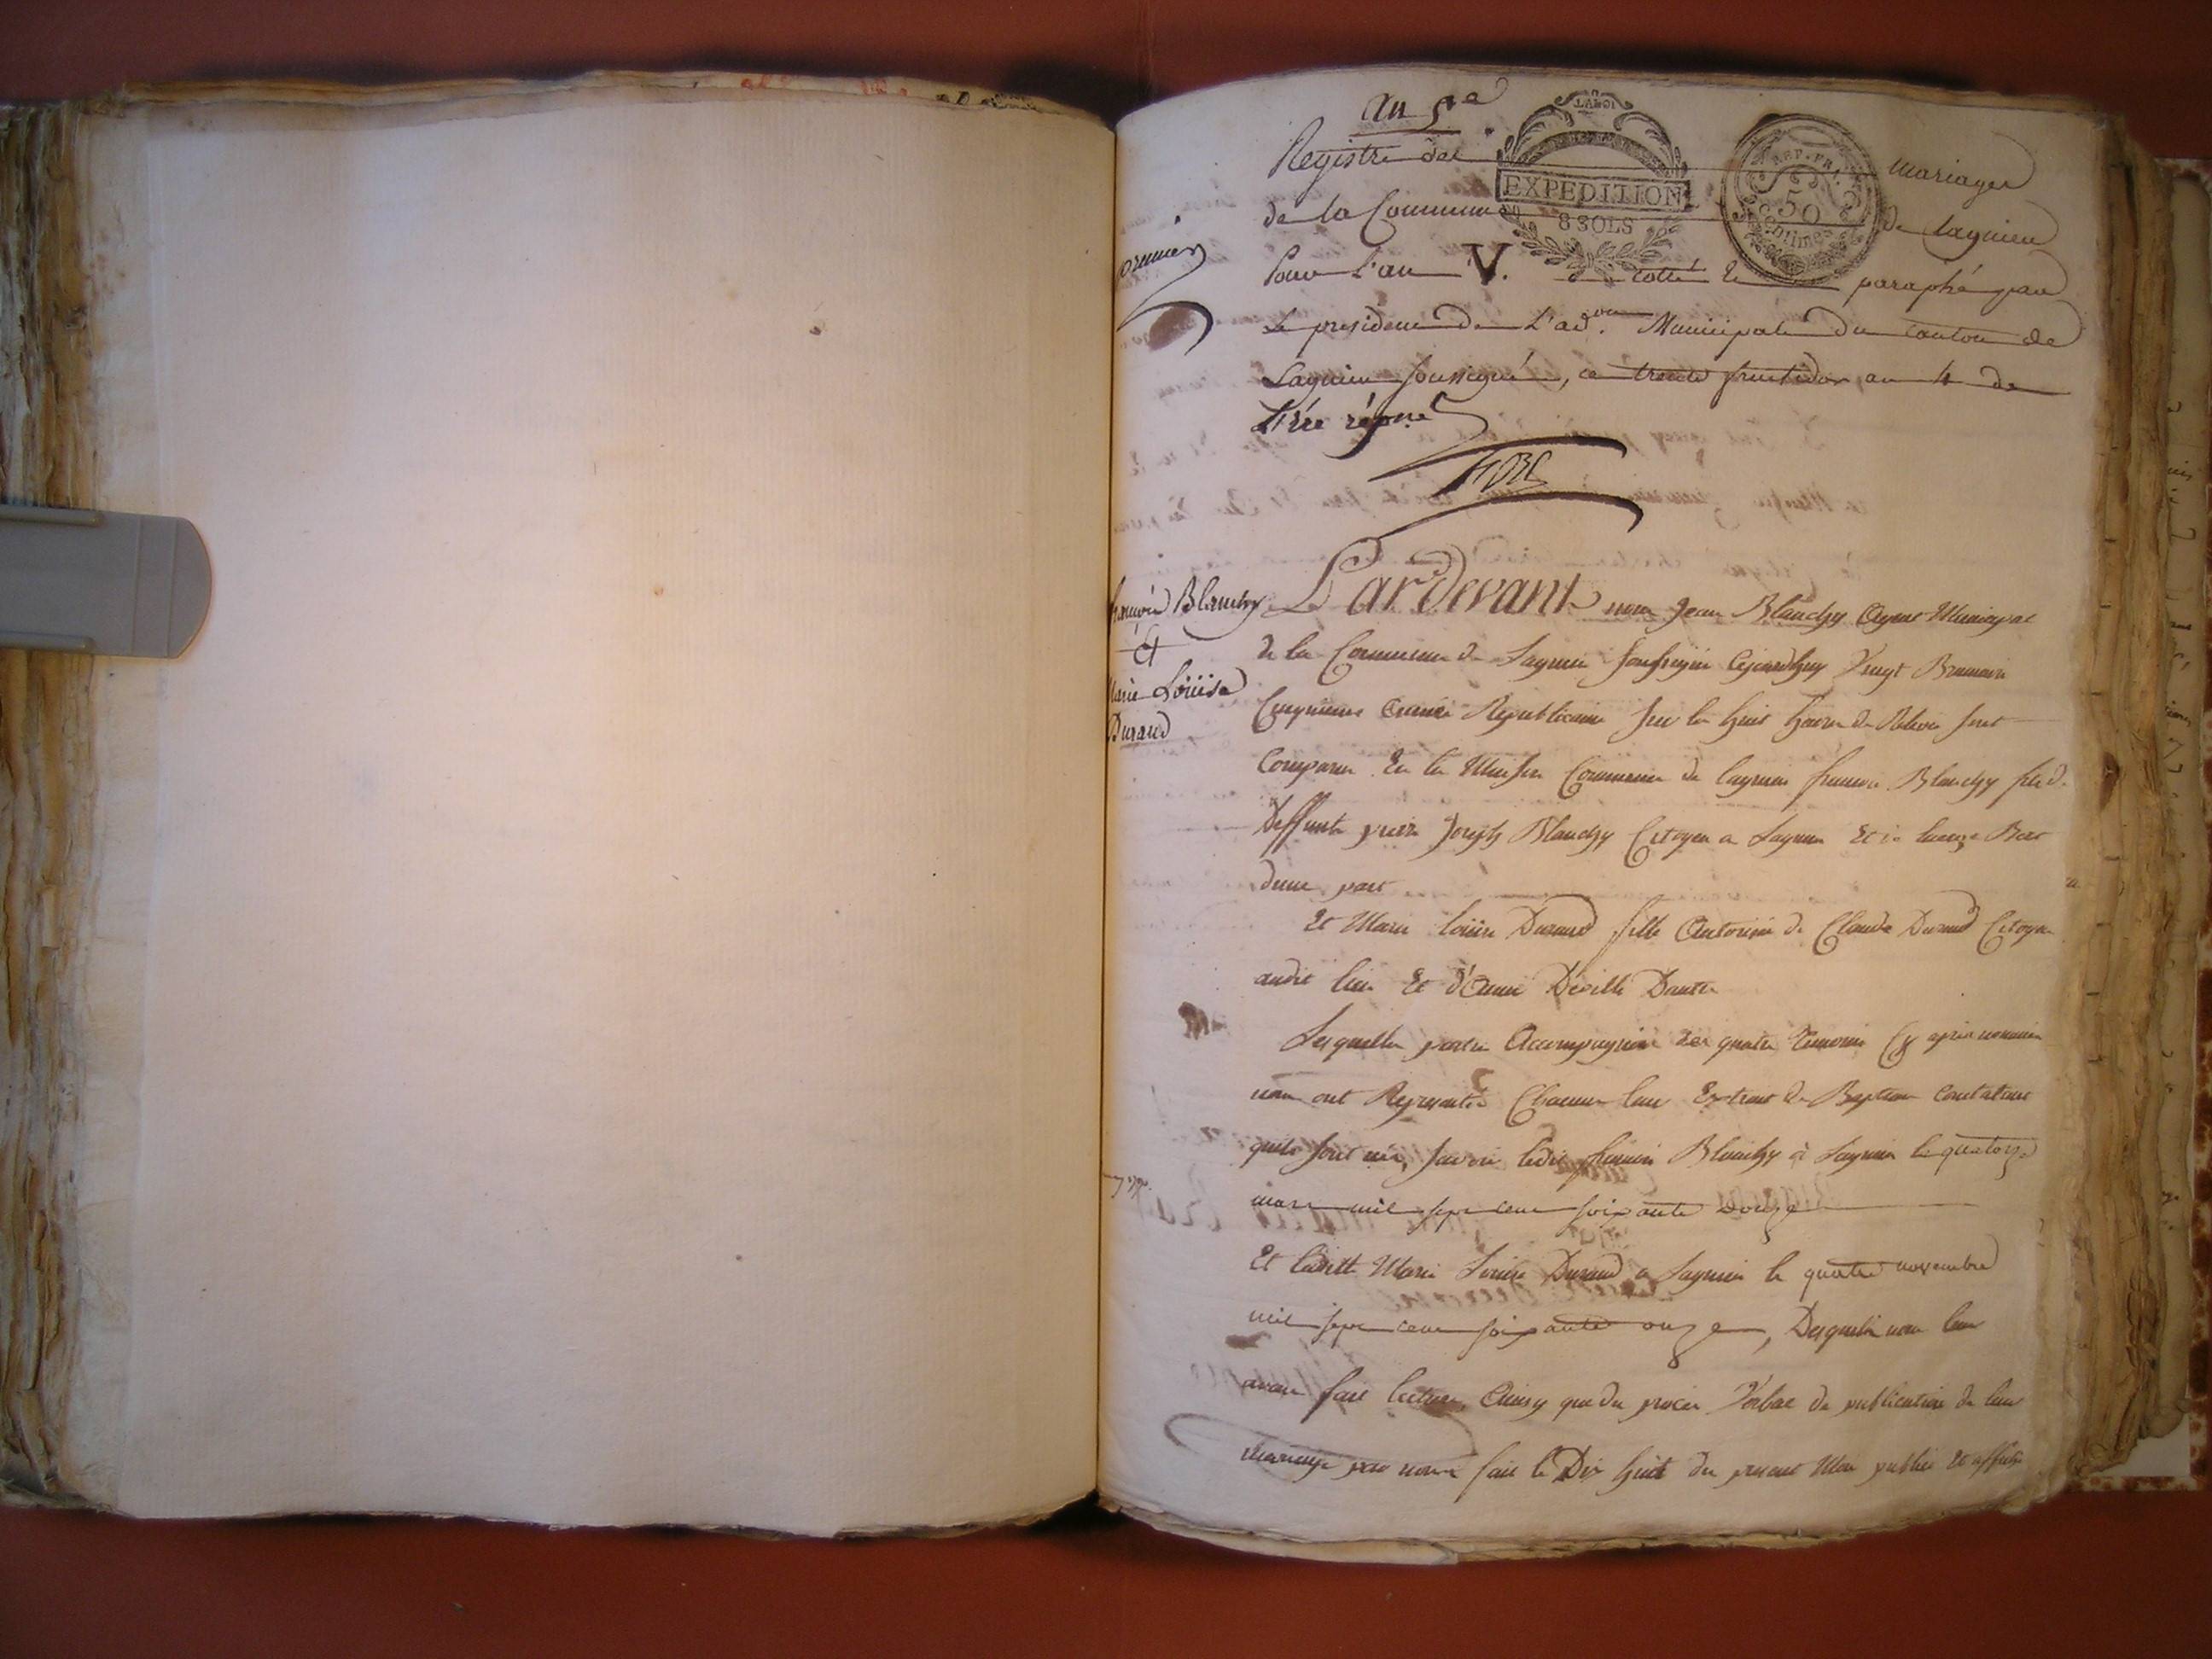 an 5e
Registre des mariages
LA LOI
EXPEDITION
8 SOLS
REP. FRA.
50
centimes
de la Commune de lagnieu
premier
Pour l'an V. cotté et paraphé par
Le president de L'adon. Municipale du canton de
Lagnieu soussigné, ce trente fructidor an 4 de
L'Ere répne
françois Blanchy
Et
Marie Loüise
Durand
Pardevant nous Jean Blanchy Agent Municipal
de la Commune de Lagnieu soussigné cejourdhuy Vingt Brumaire
Cinquieme année Republicaine sur les huit heures du sont
Comparus En la Maison Commune de lagnieu francois Blanchy fils d.
deffunts Joseph Blanchy Citoyen a Lagnieu Et
dune part
Et Marie loüise Durand fille Autorisée de Claude Durand Citoyen
audit lieu Et d'Anne Déville Dautre
Lesquelles parties Accompagnées des quatre Temoins Cy apres nommés
nous ont Representés Chacun leur Extrait de Baptême constatant
quils sont nés, savoir ledit francois Blanchy à Lagnieu le quatorze
mars mil sept cent soixante Douze
Et ladite Marie Louise Durand a Lagnieu le quatre novembre
mil sept cent soixante onze, Desquels nous leur
avons fait lecture, Ainsy que du procès Verbal de publication de leur
mariage par nous fait le Dix huit du present Mois publié Et affiché